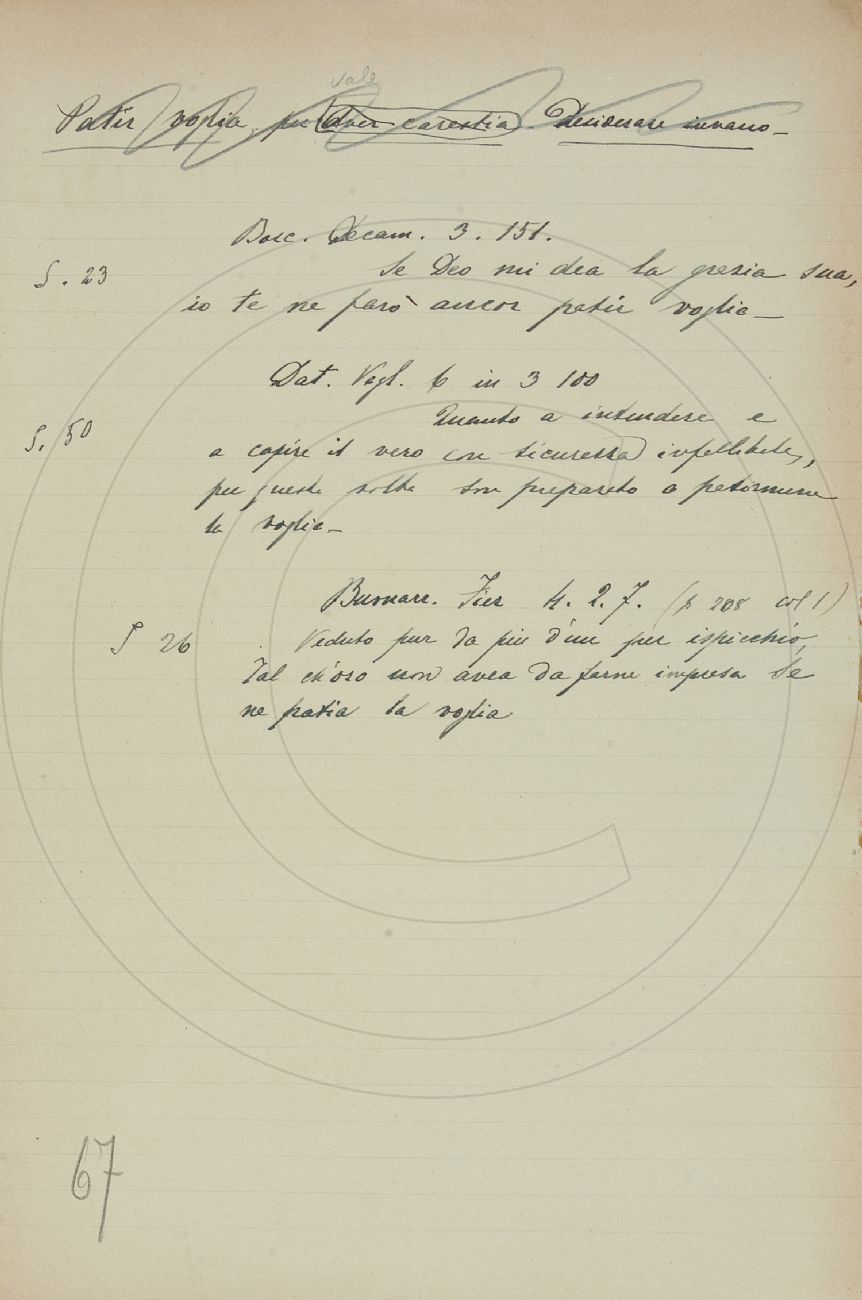 vale
Patir voglia per aver carestia. Desiderare invano_
Bocc. Decam. 3. 151.
S. 23
Se Deo mi dea la grazia sua,
io te ne farò ancor patir voglia_
Dat. Vegl. 6 in 3 100
Quanto a intendere e
S. 50
a capire il vero con sicurezza infallibile,
per questa volta son preparato a patirmene
la voglia_
Buonarr. Fier 4. 2. 7. (p 208 col 1)
S 26
Veduto pur da più d'un per ispicchio,
Tal ch'oso non avea da farne impresa Se
ne patia la voglia
67